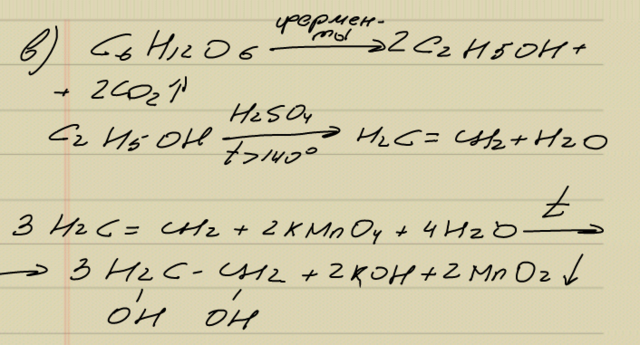 в) C6H12O6 —фермен-ты→ 2C2H5OH +
+ 2CO2↑
C2H5OH —H2SO4, t>140°→ H2C=CH2+H2O
3H2C=CH2 + 2KMnO4 + 4H2O —t→
→ 3H2C-CH2 + 2KOH + 2MnO2↓
OH OH